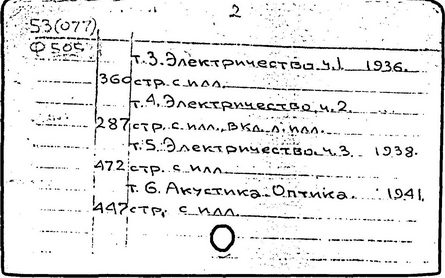 2
53(077)
Ф 505
т.3. Электричество ч.1 1936.
360 стр. с илл.
т.4. Электричество ч.2.
287 стр. с илл., вкл. л. илл.
т.5. Электричество ч.3. 1938.
472 стр. с илл.
т. 6. Акустика. Оптика. 1941.
447 стр. с илл.